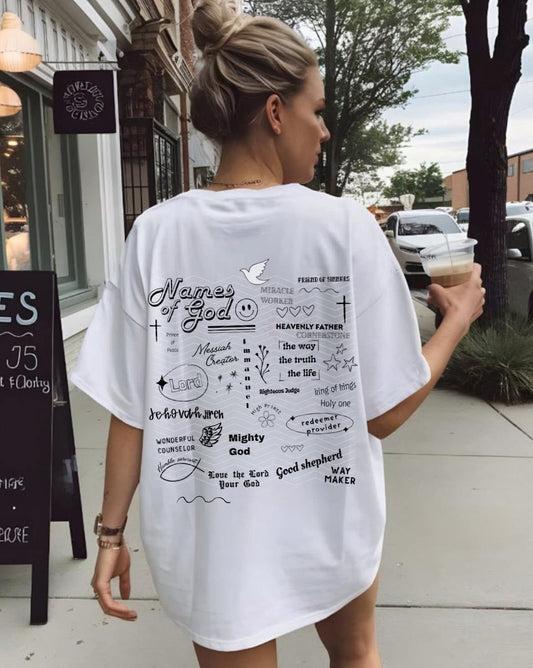 Names
of God
FRIEND OF SINNERS
MIRACLE
WORKER
Prince
of
Peace
HEAVENLY FATHER
CORNERSTONE
Messiah
Creator
Immanuel
[the way
the truth
the life]
Lord
Righteous Judge
king of kings
Holy one
Jehovah JIREH
High Priest
redeemer
provider
WONDERFUL
COUNSELOR
Mighty
God
Humble servant
Love the Lord
Your God
Good shepherd
WAY
MAKER
ES
J5